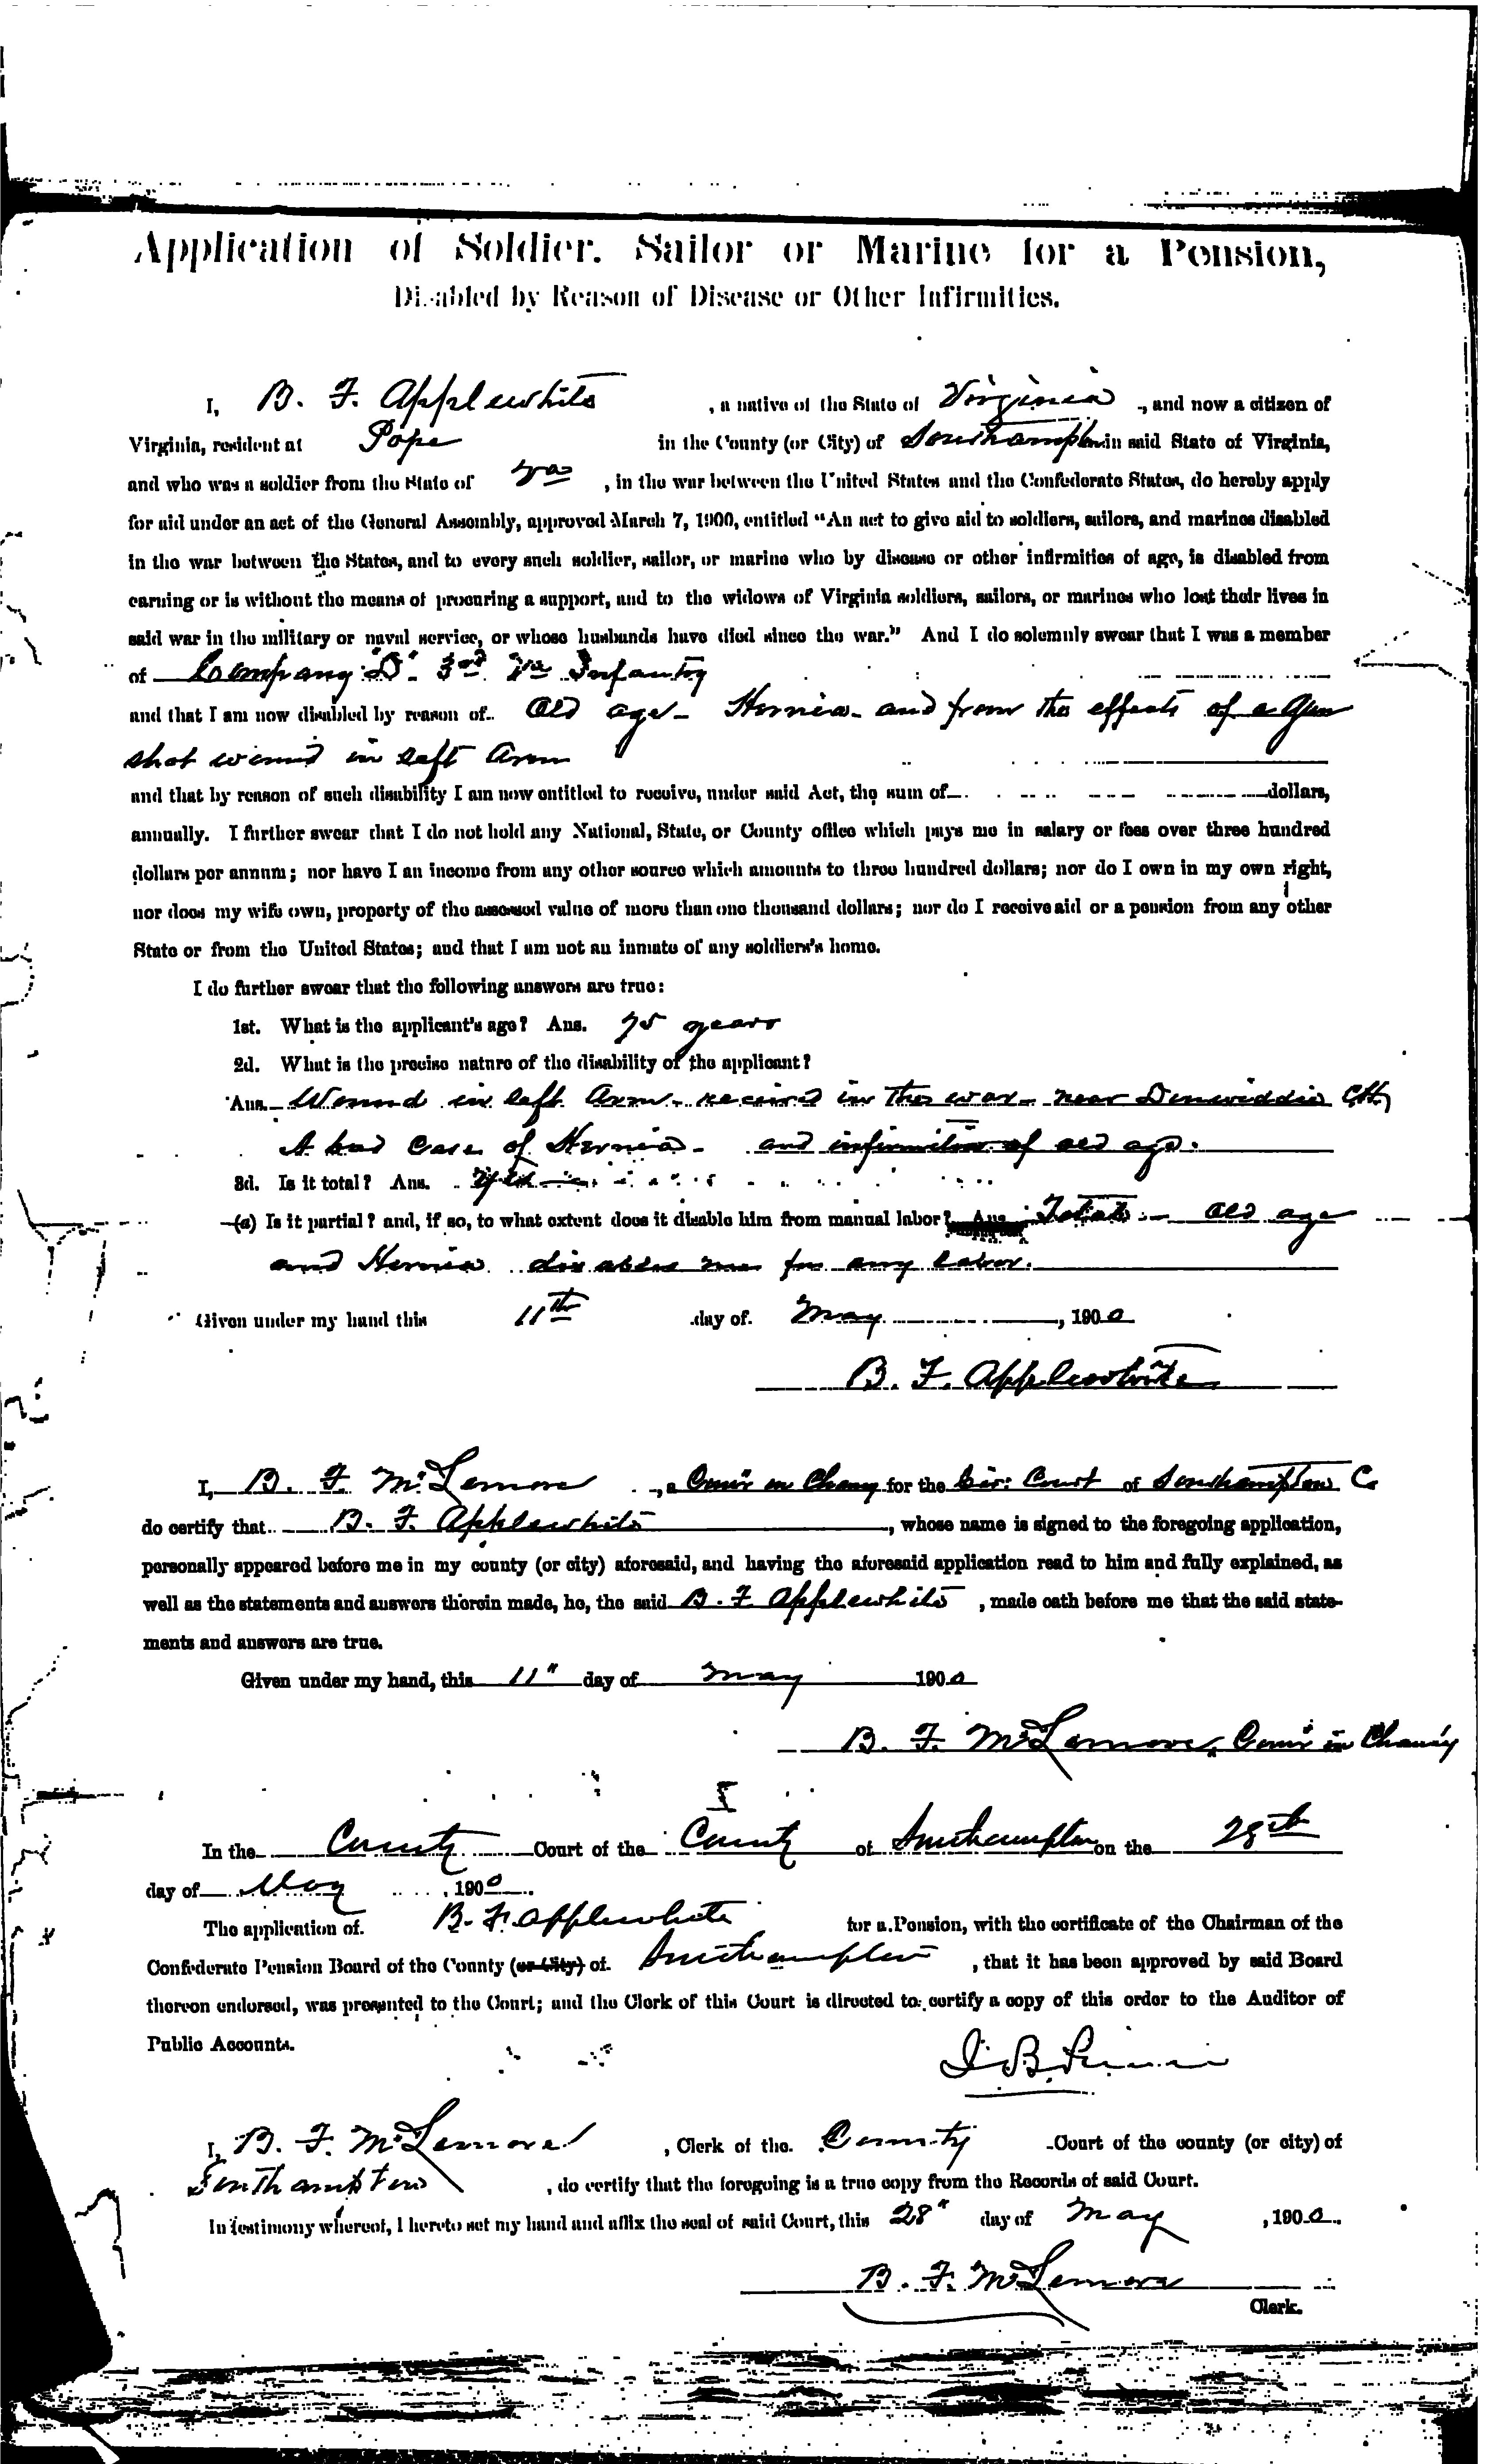 Application of Soldier, Sailor or Marine for a Pension,
Disabled by Reason of Disease or Other Infirmities.
I, B. F. Applewhite, a native of the State of Virginia, and now a citizen of
Virginia, resident at Pope in the County (or City) of Southampton in said State of Virginia,
and who was a soldier from the State of Va, in the war between the United States and the Confederate States, do hereby apply
for aid under an act of the General Assembly, approved March 7, 1900, entitled "An act to give aid to soldiers, sailors, and marines disabled
in the war between the States, and to every such soldier, sailor, or marine who by disease or other infirmities of age, is disabled from
earning or is without the means of procuring a support, and to the widows of Virginia soldiers, sailors, or marines who lost their lives in
said war in the military or naval service, or whose husbands have died since the war." And I do solemnly swear that I was a member
of Company "D" 3rd Va Infantry
and that I am now disabled by reason of Old age - Hernia - and from the effects of a Gun
shot wound in left Arm
and that by reason of such disability I am now entitled to receive, under said Act, the sum of dollars,
annually. I further swear that I do not hold any National, State, or County office which pays me in salary or fees over three hundred
dollars per annum; nor have I an income from any other source which amounts to three hundred dollars; nor do I own in my own right,
nor does my wife own, property of the assessed value of more than one thousand dollars; nor do I receive aid or a pension from any other
State or from the United States; and that I am not an inmate of any soldiers's home.
I do further swear that the following answers are true:
1st. What is the applicant's age? Ans. 75 years
2d. What is the precise nature of the disability of the applicant?
Ans. Wound in left Arm - received in the war - near Dinwiddie C.H,
A bad case of Hernia - and infirmities of old age.
3d. Is it total? Ans. Yes
(a) Is it partial? and, if so, to what extent does it disable him from manual labor? Ans. Total - Old age
and Hernia disables me for any labor.
Given under my hand this 11th day of May, 1900
B. F. Applewhite
I, B. F. McLemore, a Com'r in Chany for the Cir: Court of Southampton C.
do certify that B. F. Applewhite, whose name is signed to the foregoing application,
personally appeared before me in my county (or city) aforesaid, and having the aforesaid application read to him and fully explained, as
well as the statements and answers therein made, he, the said B. F. Applewhite, made oath before me that the said state-
ments and answers are true.
Given under my hand, this 11" day of May 1900
B. F. McLemore, Com'r in Chan'y
In the County Court of the County of Southampton on the 28th
day of May, 1900.
The application of B. F. Applewhite for a Pension, with the certificate of the Chairman of the
Confederate Pension Board of the County (or City) of Southampton, that it has been approved by said Board
thereon endorsed, was presented to the Court; and the Clerk of this Court is directed to certify a copy of this order to the Auditor of
Public Accounts.
I, B. F. McLemore, Clerk of the County Court of the county (or city) of
Southampton, do certify that the foregoing is a true copy from the Records of said Court.
In testimony whereof, I hereto set my hand and affix the seal of said Court, this 28" day of May, 1900.
B. F. McLemore
Clerk.